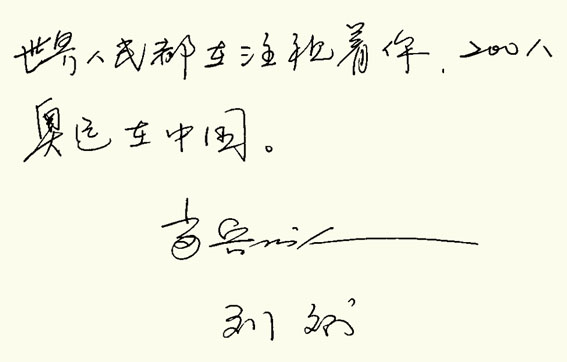 世界人民都在注视着你，2008
奥运在中国。
刘